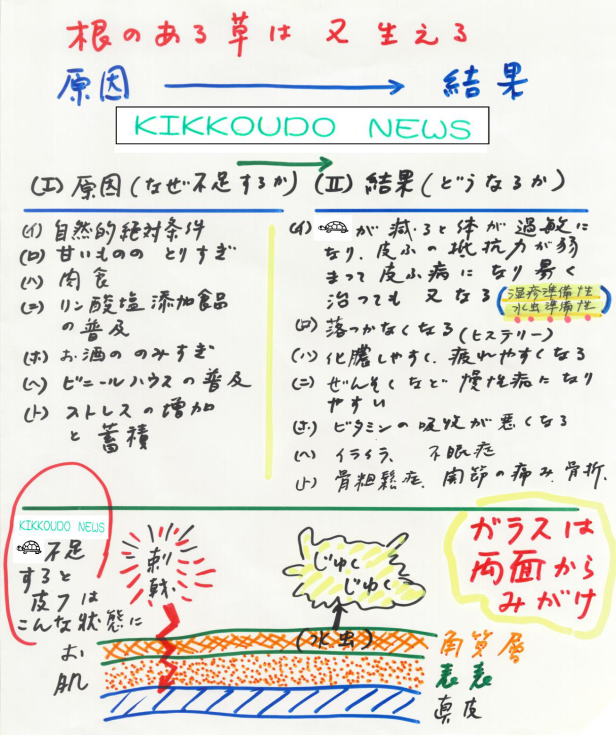 根のある草は又生える
原因
結果
KIKKOUDO NEWS
(I) 原因(なぜ不足するか)
(イ) 自然的絶対条件
(ロ) 甘いものの とりすぎ
(ハ) 肉食
(ニ) リン酸塩添加食品
の普及
(ホ) お酒ののみすぎ
(ヘ) ビニールハウスの普及
(ト) ストレスの増加
と蓄積
(II) 結果(どうなるか)
(イ) が減ると体が過敏に
なり、皮ふの抵抗力が弱
まって皮ふ病になり易く
治っても 又なる
(湿疹準備性
水虫準備性)
(ロ) 落つかなくなる(ヒステリー)
(ハ) 化膿しやすく、疲れやすくなる
(ニ) ぜんそくなど慢性病になり
やすい
(ホ) ビタミンの吸収が悪くなる
(ヘ) イライラ、不眠症
(ト) 骨粗鬆症、関節の痛み、骨折、
KIKKOUDO NEWS
不足
すると
皮フは
こんな状態に
刺
戟
じゅく
じゅく
ガラスは
両面から
みがけ
(水虫)
お
肌
角質層
表表
真皮